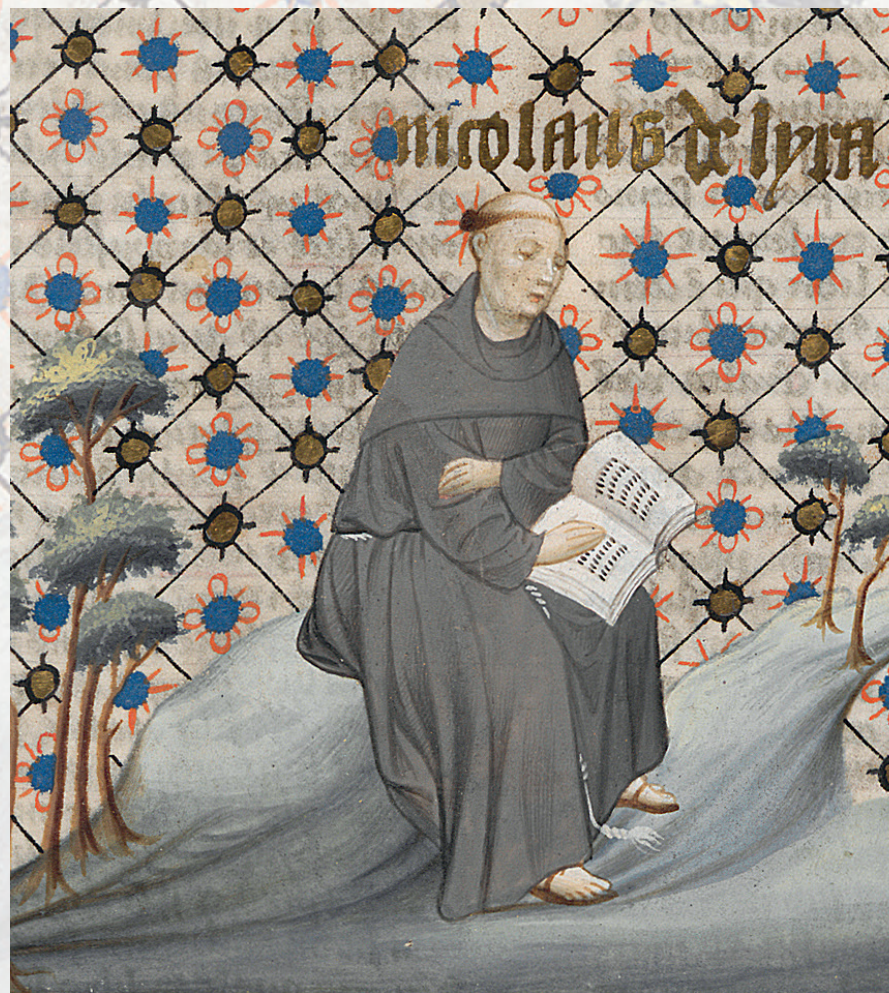 nicolaus de lyra